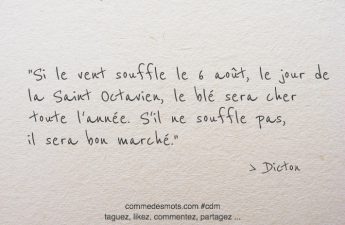 "Si le vent souffle le 6 août, le jour de
la Saint Octavien, le blé sera cher
toute l'année. S'il ne souffle pas,
il sera bon marché."
> Dicton
commedesmots.com #cdm
taguez, likez, commentez, partagez ...